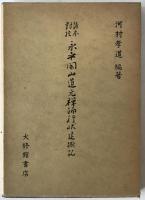 河村孝道 編著
諸本
対校
永平開山道元禅師行状建撕記
大修館書店